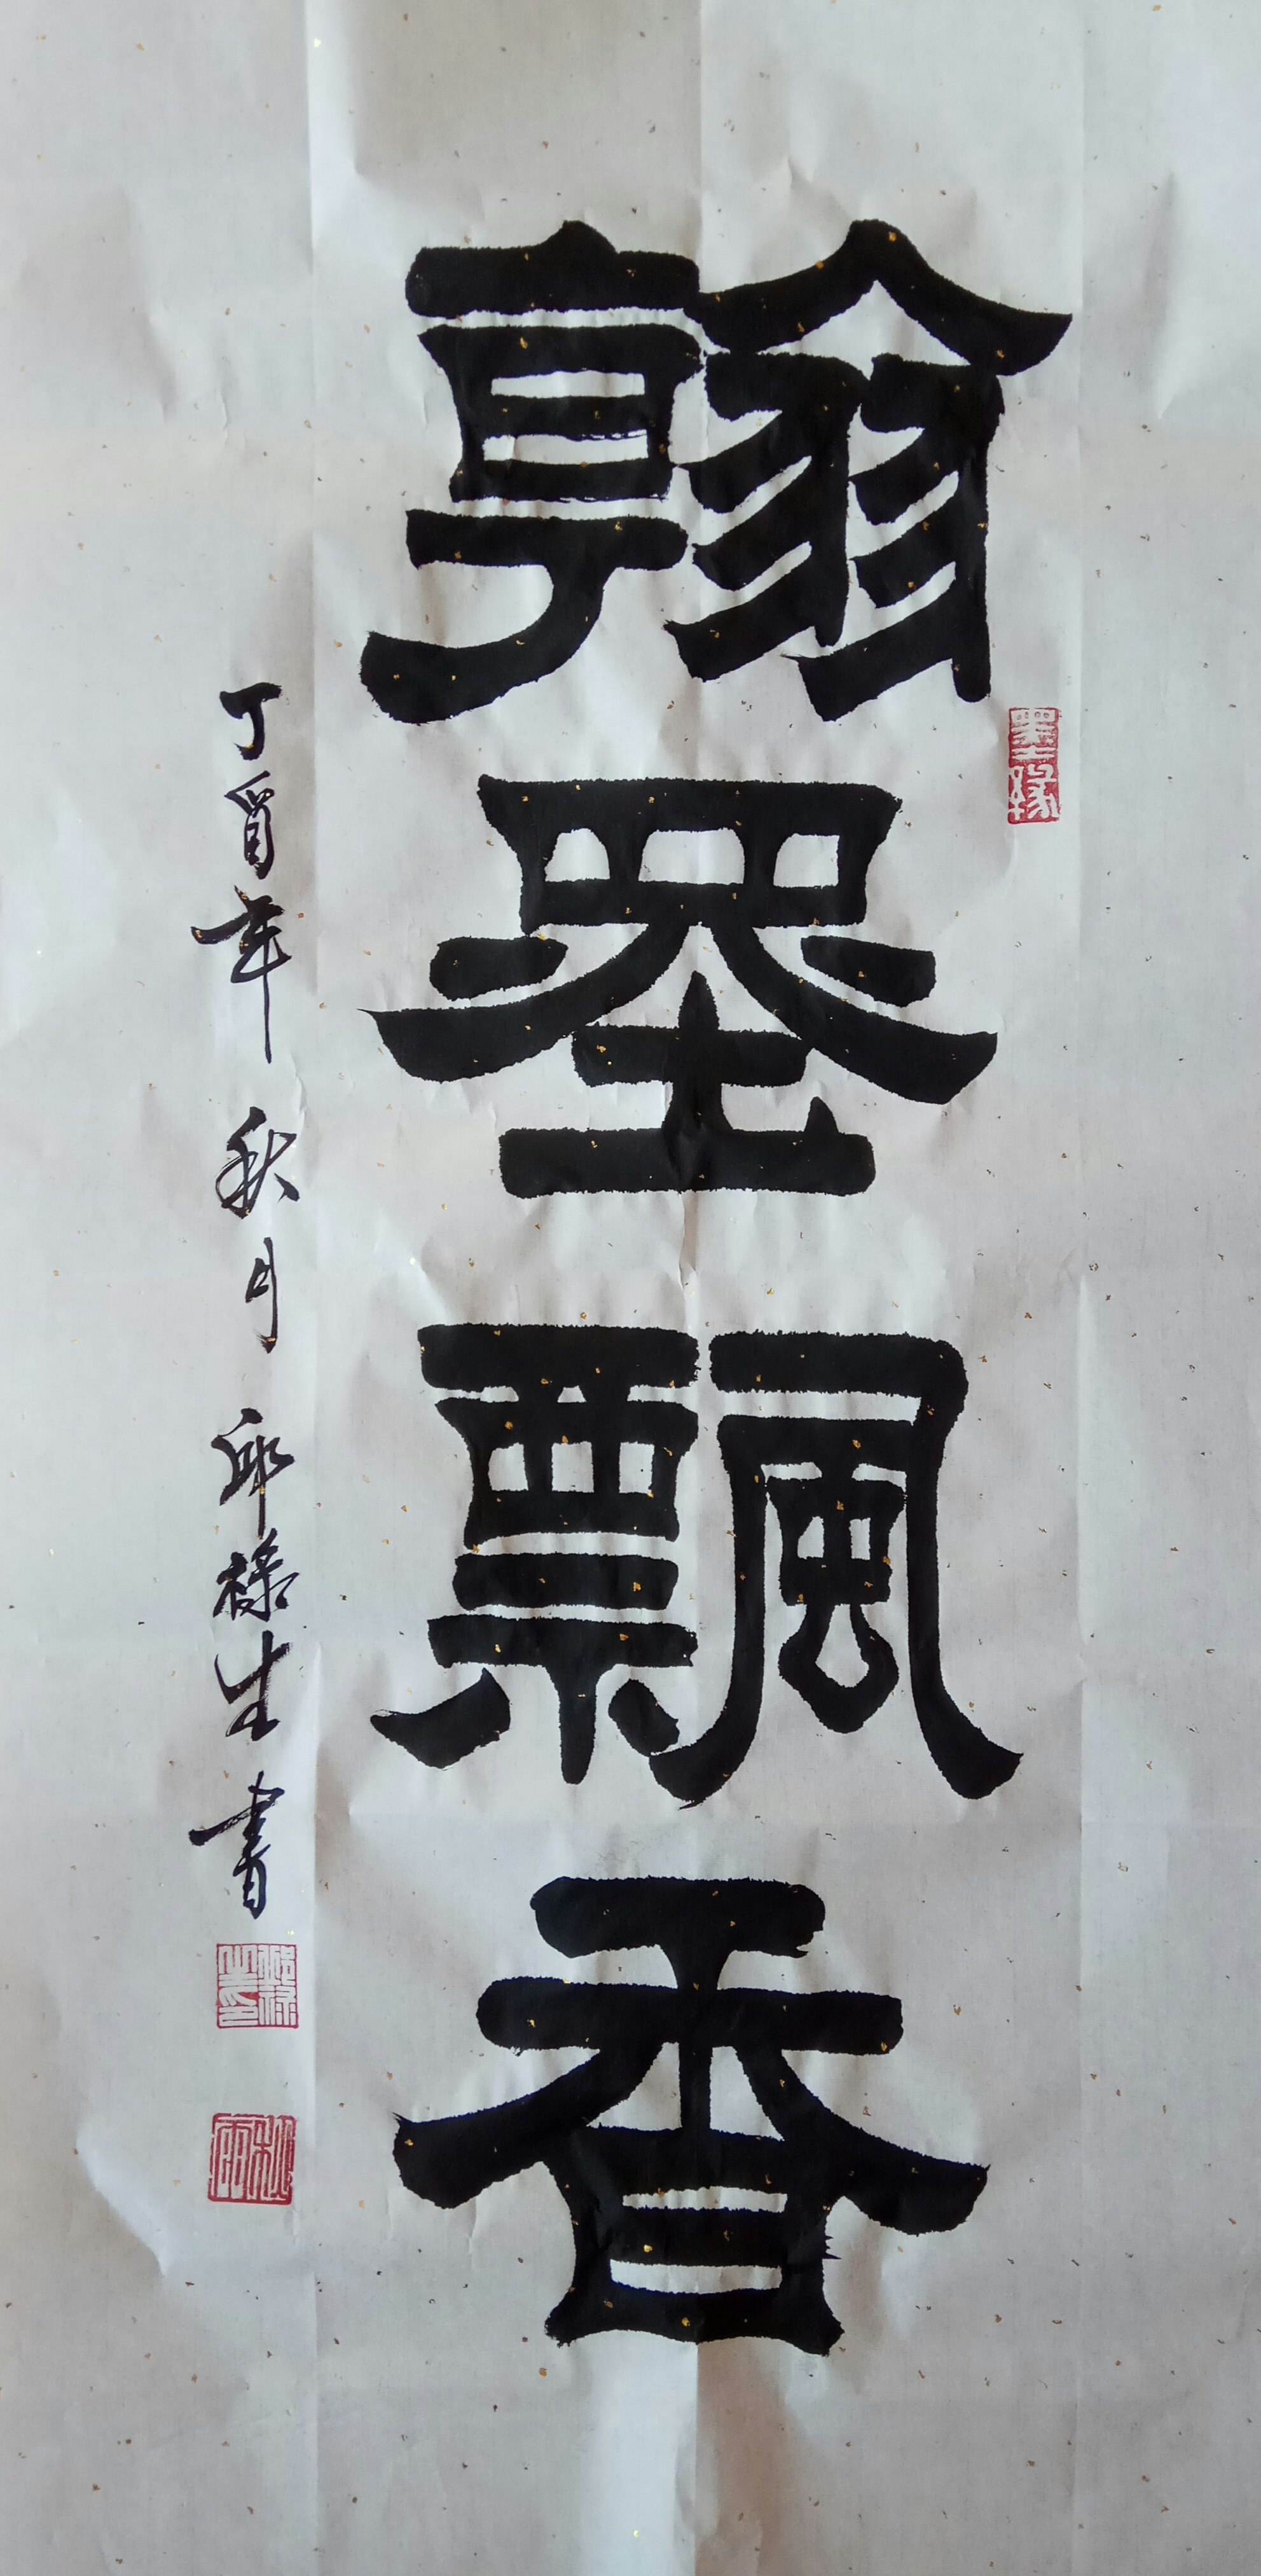 翰墨飄香
墨缘
丁酉年 秋月 邱祿生 書